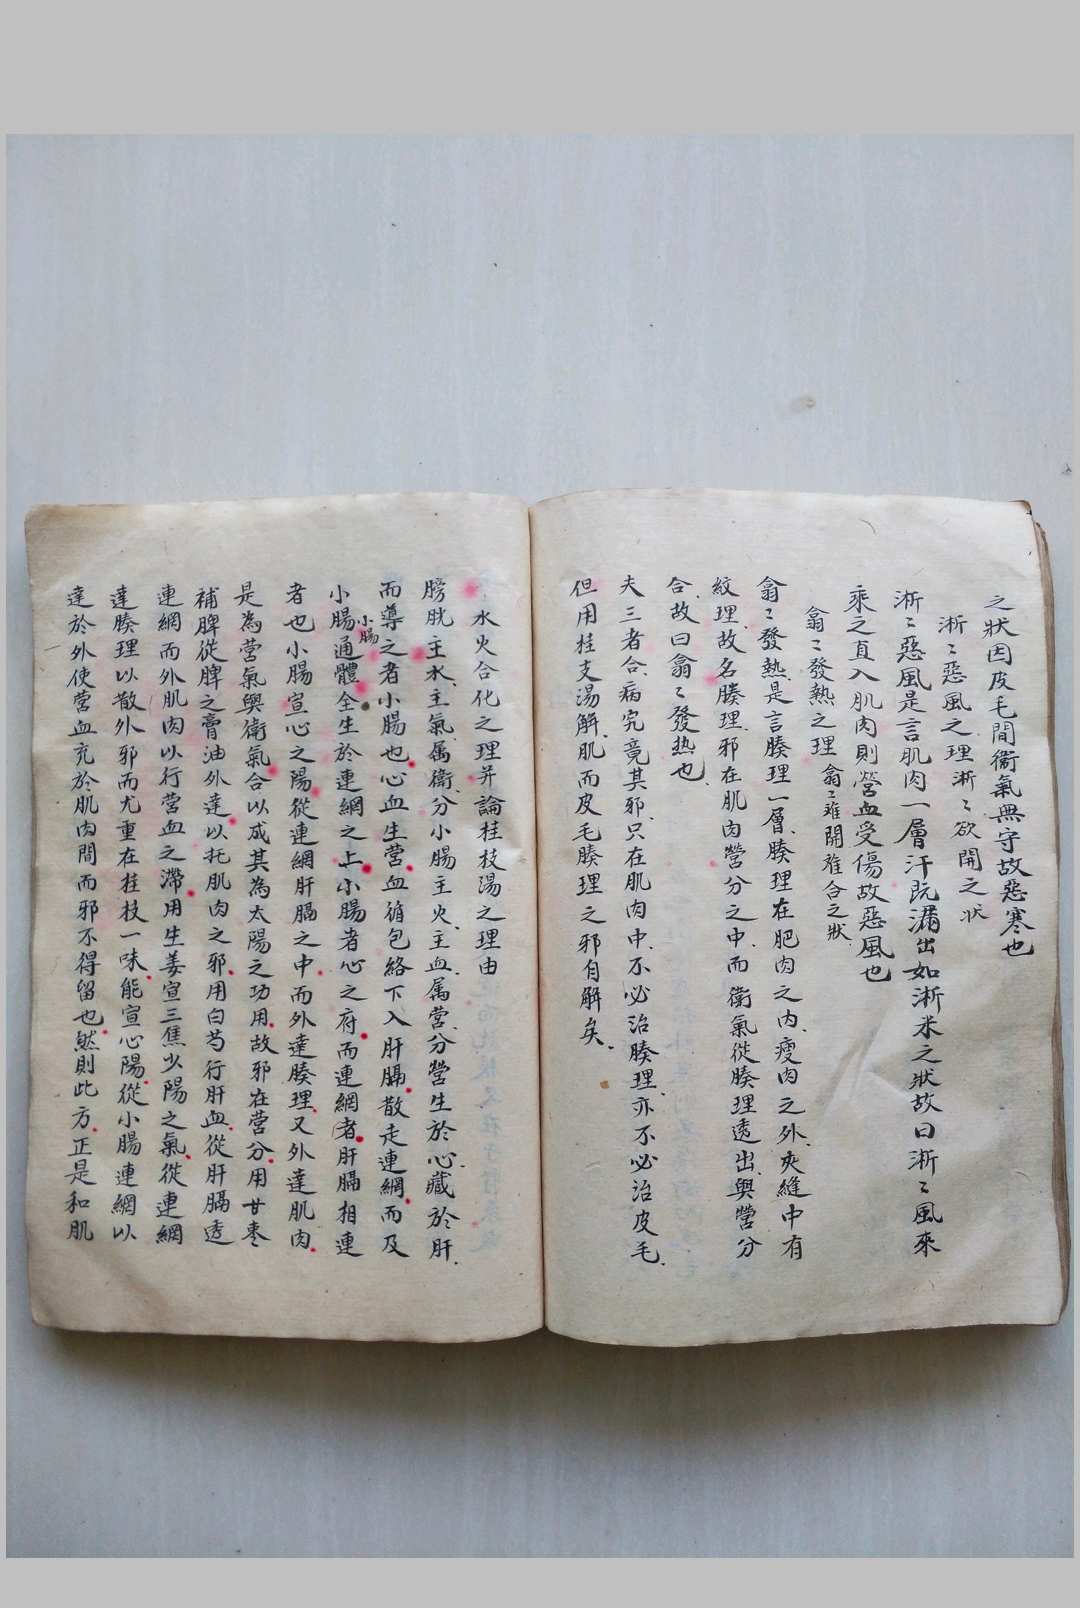 之狀因皮毛間衛氣無守故惡寒也
淅〻惡風之理淅〻欲開之狀
淅〻惡風是言肌肉一層汗既漏出如淅米之狀故曰淅〻風來
乘之直入肌肉則營血受傷故惡風也
翕〻發熱之理翕〻難開難合之狀
翕〻發熱是言腠理一層腠理在肥肉之内瘦肉之外夾縫中有
紋理故名腠理邪在肌肉營分之中而衛氣從腠理透出與營分
合故曰翕〻發热也
夫三者合病究竟其邪只在肌肉中不必治腠理亦不必治皮毛
但用桂支湯解肌而皮毛腠理之邪自解矣
水火合化之理并論桂枝湯之理由
膀胱主水主氣属衛分小腸主火主血属营分营生於心藏於肝
而導之者小腸也心血生营血循包络下入肝膈散走連網而及
小腸小腸通體全生於連網之上小腸者心之府而連網者肝膈相連
者也小腸宣心之陽從連網肝膈之中而外達腠理又外達肌肉
是為营氣與衛氣合以成其為太陽之功用故邪在营分用甘棗
補脾從脾之膏油外達以托肌肉之邪用白芍行肝血從肝膈透
連網而外肌肉以行营血之滯用生姜宣三焦少陽之氣從連網
達腠理以散外邪而尤重在桂枝一味能宣心陽從小腸連網以
達於外使营血充於肌肉間而邪不得留也然則此方正是和肌